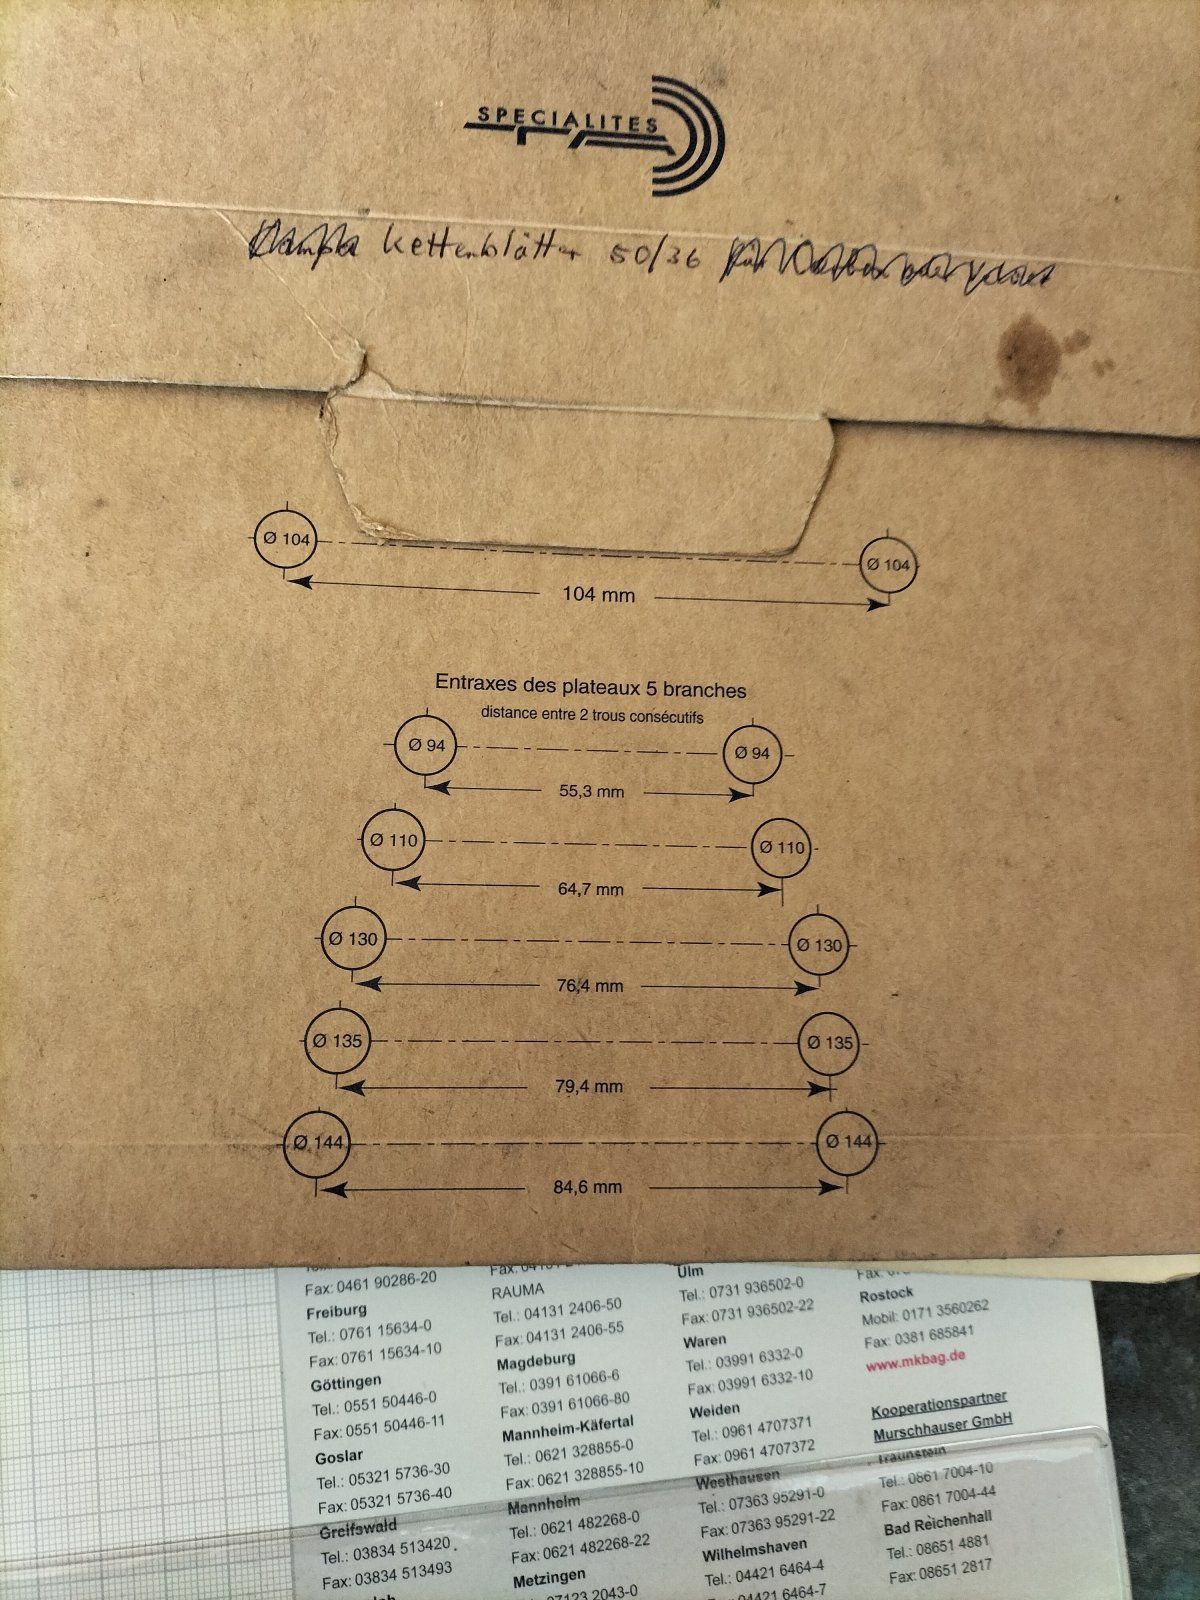 SPECIALITES
TA
Kettenblätter 50/36
Ø 104
Ø 104
104 mm
Entraxes des plateaux 5 branches
distance entre 2 trous consécutifs
Ø 94
Ø 94
55,3 mm
Ø 110
Ø 110
64,7 mm
Ø 130
Ø 130
76,4 mm
Ø 135
Ø 135
79,4 mm
Ø 144
Ø 144
84,6 mm
Fax: 0461 90286-20
Freiburg
Tel.: 0761 15634-0
Fax: 0761 15634-10
Göttingen
Tel.: 0551 50446-0
Fax: 0551 50446-11
Goslar
Tel.: 05321 5736-30
Fax: 05321 5736-40
Greifswald
Tel.: 03834 513420
Fax: 03834 513493
RAUMA
Tel.: 04131 2406-50
Fax: 04131 2406-55
Magdeburg
Tel.: 0391 61066-6
Fax: 0391 61066-80
Mannheim-Käfertal
Tel.: 0621 328855-0
Fax: 0621 328855-10
Mannheim
Tel.: 0621 482268-0
Fax: 0621 482268-22
Metzingen
07123 2043-0
Ulm
Tel.: 0731 936502-0
Fax: 0731 936502-22
Waren
Tel.: 03991 6332-0
Fax: 03991 6332-10
Weiden
Tel.: 0961 4707371
Fax: 0961 4707372
Westhausen
Tel.: 07363 95291-0
Fax: 07363 95291-22
Wilhelmshaven
Tel.: 04421 6464-4
04421 6464-7
Rostock
Mobil: 0171 3560262
Fax: 0381 685841
www.mkbag.de
Kooperationspartner
Murschhauser GmbH
Traunstein
Tel.: 0861 7004-10
Fax: 0861 7004-44
Bad Reichenhall
Tel.: 08651 4881
Fax: 08651 2817